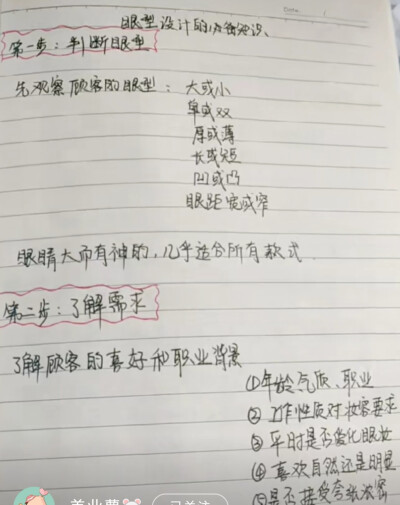 眼型设计的必备知识、
Date
第一步:判断眼型
先观察顾客的眼型:大或小
单或双
厚或薄
长或短
凹或凸
眼距宽或窄
眼睛大而有神的,几乎适合所有款式
第二步:了解需求
了解顾客的喜好和职业背景
①年龄气质、职业
②工作性质对妆容要求
③平时是否爱化眼妆
④喜欢自然还是明显
⑤是否接受夸张浓密
美业萝
已关注